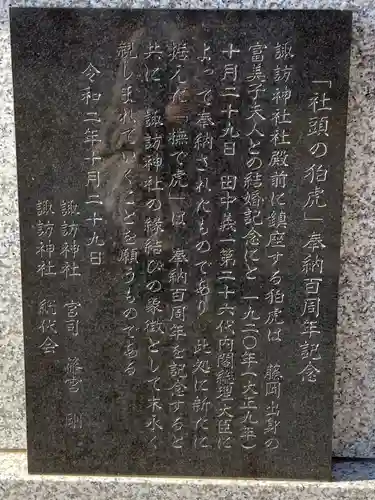 「社頭の狛虎」奉納百周年記念
諏訪神社社殿前に鎮座する狛虎は 藤岡出身の
富美子夫人との結婚記念にと 一九二〇年(大正九年)
十月二十九日 田中義一第二十六代内閣総理大臣に
よって奉納されたものであり 此処に新たに
据えた「撫で虎」は 奉納百周年を記念すると
共に 諏訪神社の縁結びの象徴として末永く
親しまれていくことを願うものである
令和二年十月二十九日
諏訪神社 宮司 篠宮 剛
諏訪神社 総代会